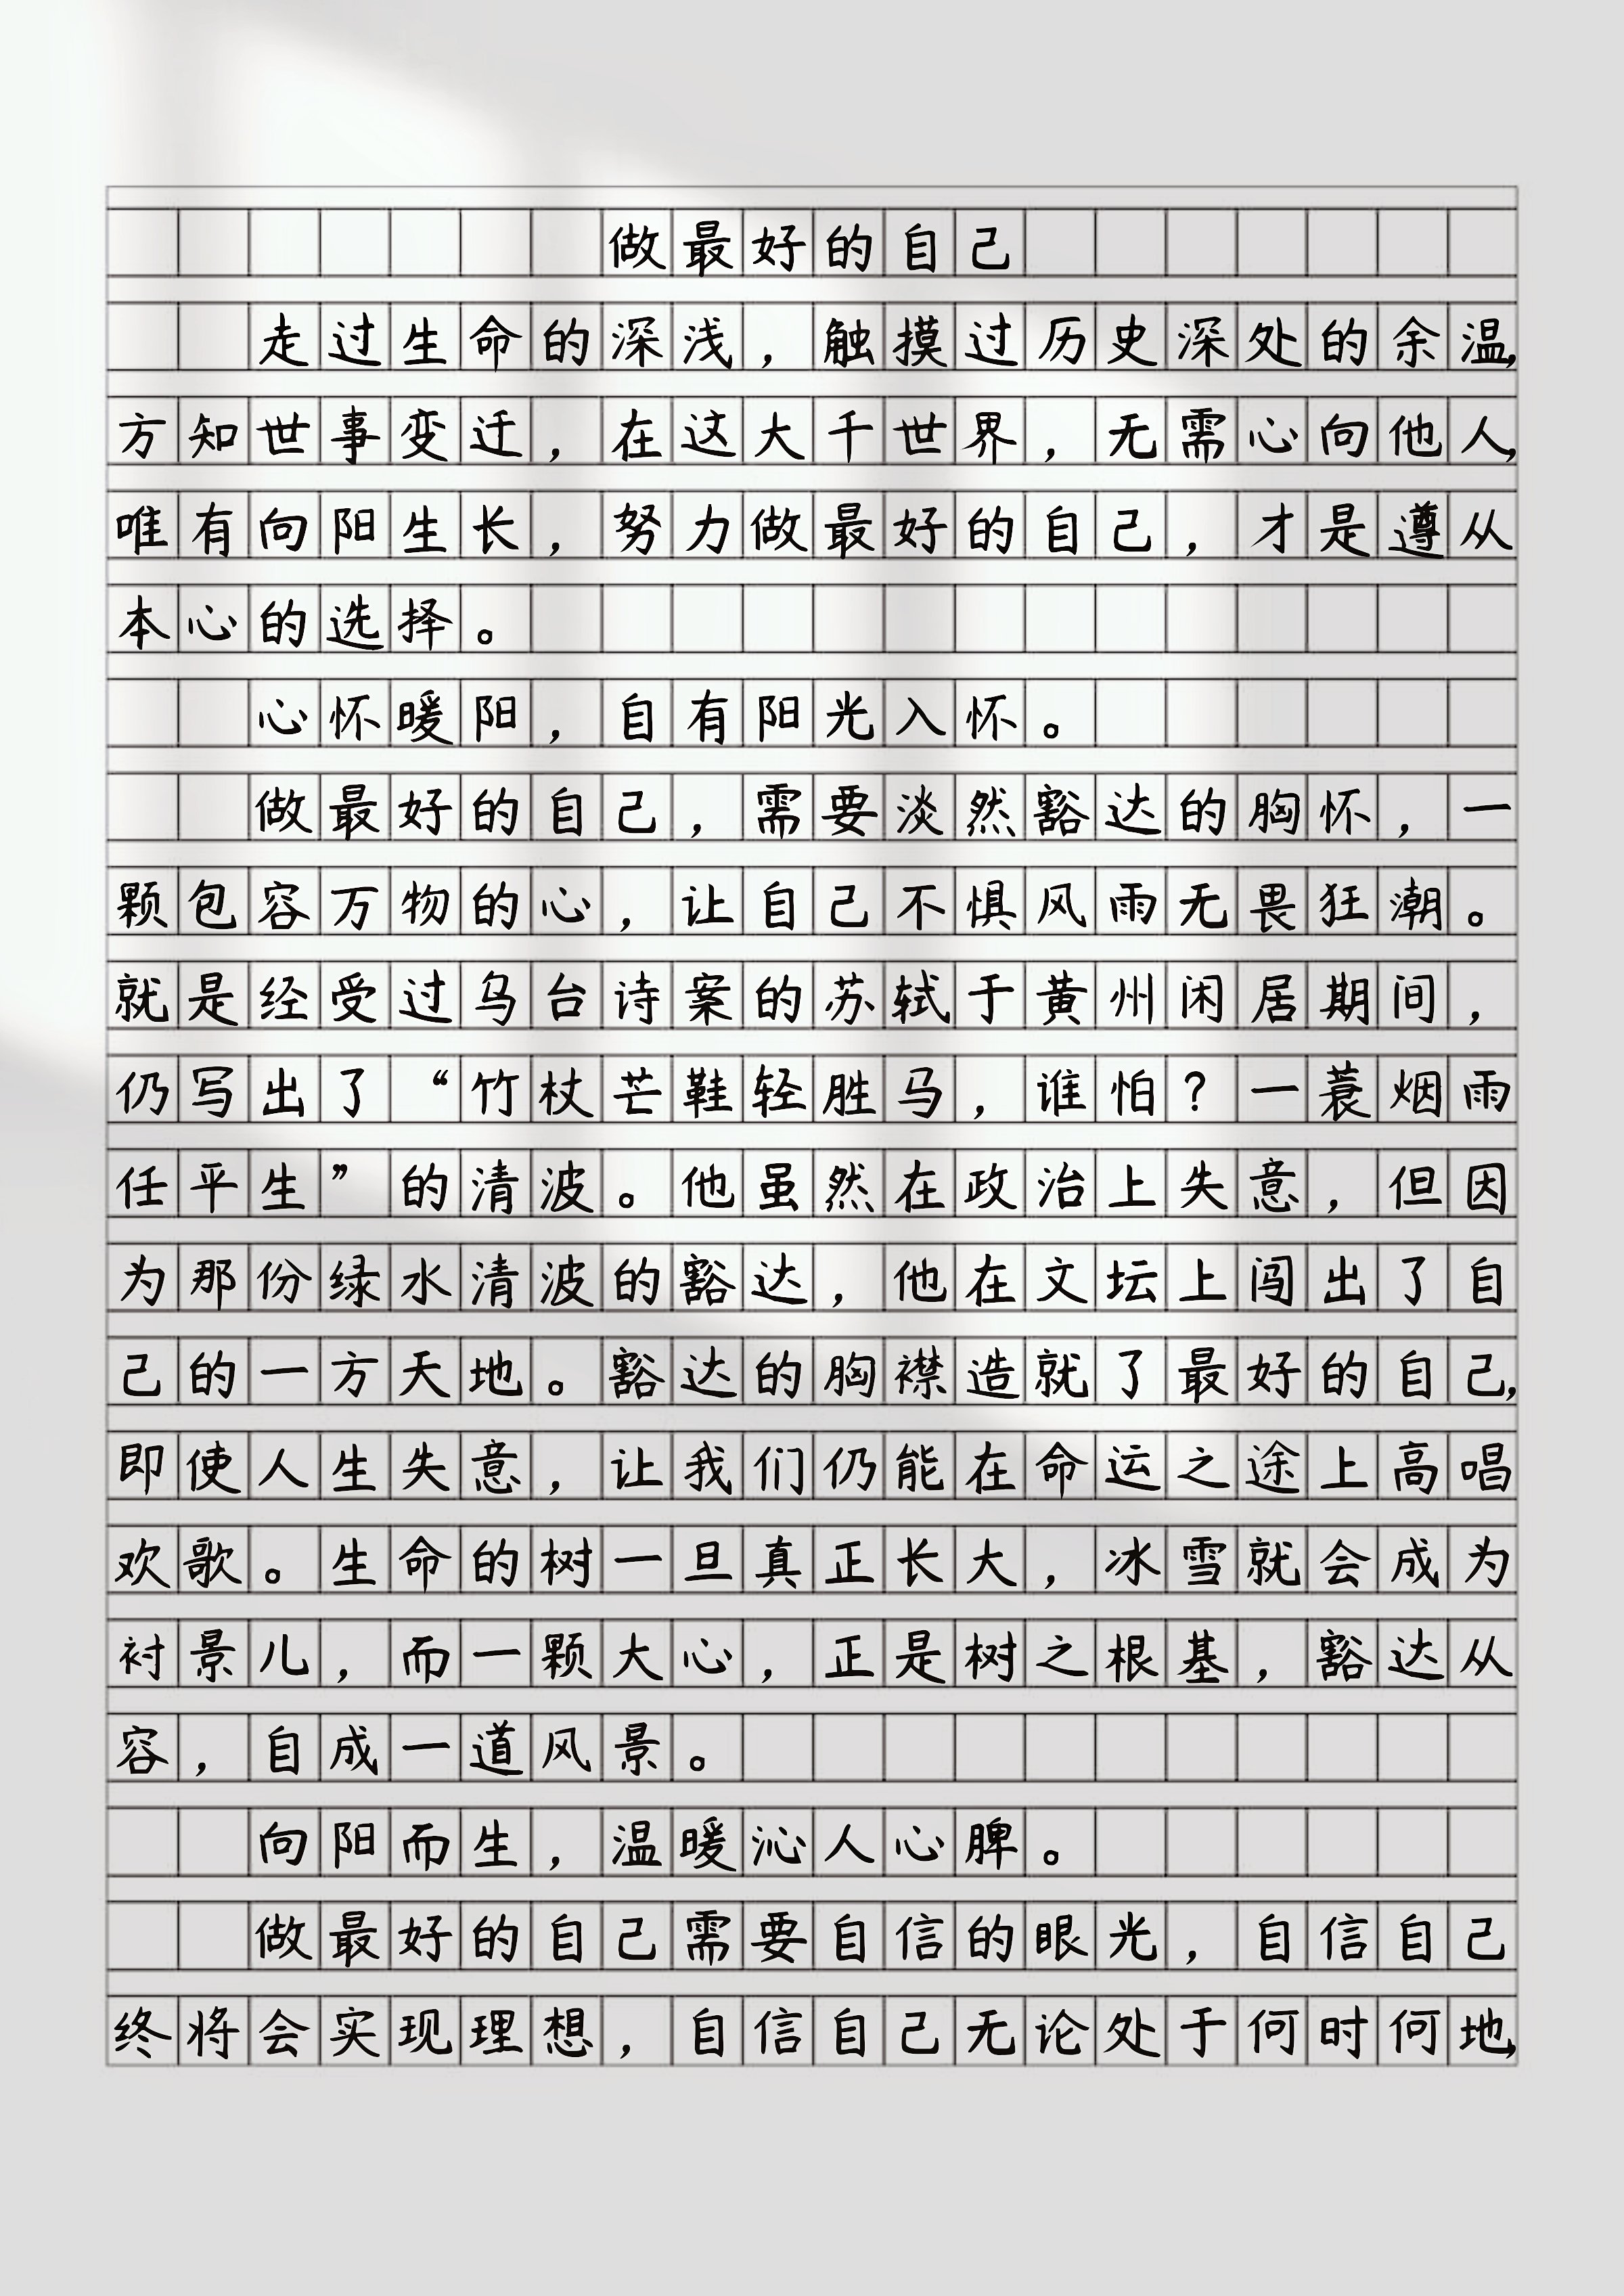 做最好的自己
走过生命的深浅，触摸过历史深处的余温，
方知世事变迁，在这大千世界，无需心向他人，
唯有向阳生长，努力做最好的自己，才是遵从
本心的选择。
心怀暖阳，自有阳光入怀。
做最好的自己，需要淡然豁达的胸怀，一
颗包容万物的心，让自己不惧风雨无畏狂潮。
就是经受过乌台诗案的苏轼于黄州闲居期间，
仍写出了“竹杖芒鞋轻胜马，谁怕？一蓑烟雨
任平生”的清波。他虽然在政治上失意，但因
为那份绿水清波的豁达，他在文坛上闯出了自
己的一方天地。豁达的胸襟造就了最好的自己，
即使人生失意，让我们仍能在命运之途上高唱
欢歌。生命的树一旦真正长大，冰雪就会成为
衬景儿，而一颗大心，正是树之根基，豁达从
容，自成一道风景。
向阳而生，温暖沁人心脾。
做最好的自己需要自信的眼光，自信自己
终将会实现理想，自信自己无论处于何时何地，